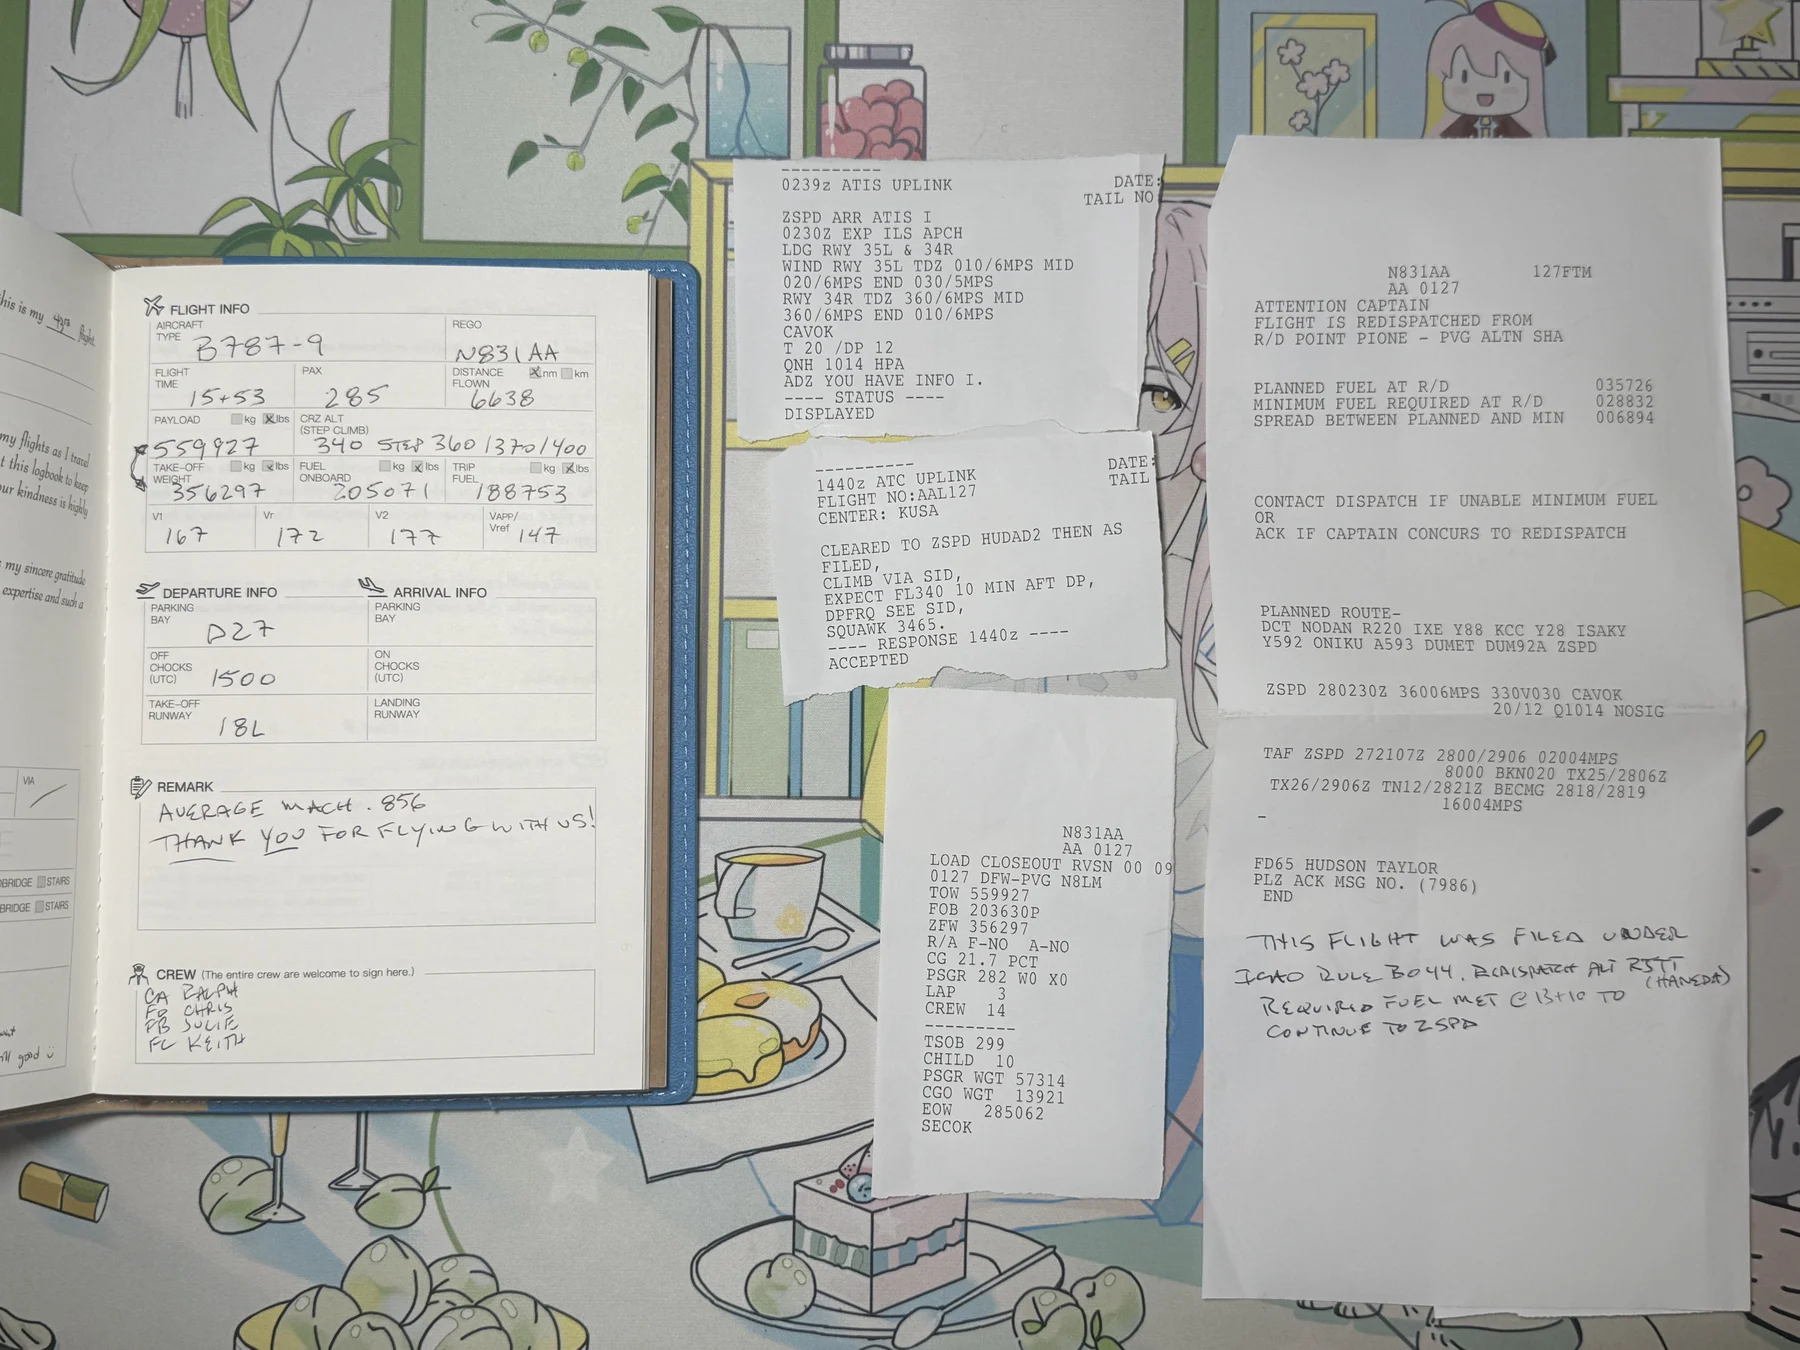 this is my 43rd flight.
my flights as I travel
t this logbook to keep
our kindness is highly
my sincere gratitude
expertise and such a
VIA
DBRIDGE STAIRS
BRIDGE STAIRS
ill good
FLIGHT INFO
AIRCRAFT TYPE B787-9
REGO N831AA
FLIGHT TIME 15+53
PAX 285
DISTANCE FLOWN nm km 6638
PAYLOAD kg lbs 559927
CRZ ALT (STEP CLIMB) 340 STEP 360/370/400
TAKE-OFF WEIGHT kg lbs 356297
FUEL ONBOARD kg lbs 205071
TRIP FUEL kg lbs 188753
V1 167
Vr 172
V2 177
VAPP/Vref 147
DEPARTURE INFO
ARRIVAL INFO
PARKING BAY D27
PARKING BAY
OFF CHOCKS (UTC) 1500
ON CHOCKS (UTC)
TAKE-OFF RUNWAY 18L
LANDING RUNWAY
REMARK
AVERAGE MACH .856
THANK YOU FOR FLYING WITH US!
CREW (The entire crew are welcome to sign here.)
CA RALPH
FO CHRIS
FB JULIE
FC KEITH
----------
0239z ATIS UPLINK DATE:
TAIL NO
ZSPD ARR ATIS I
0230Z EXP ILS APCH
LDG RWY 35L & 34R
WIND RWY 35L TDZ 010/6MPS MID
020/6MPS END 030/5MPS
RWY 34R TDZ 360/6MPS MID
360/6MPS END 010/6MPS
CAVOK
T 20 /DP 12
QNH 1014 HPA
ADZ YOU HAVE INFO I.
---- STATUS ----
DISPLAYED
----------
DATE:
1440z ATC UPLINK TAIL
FLIGHT NO:AAL127
CENTER: KUSA
CLEARED TO ZSPD HUDAD2 THEN AS
FILED,
CLIMB VIA SID,
EXPECT FL340 10 MIN AFT DP,
DPFRQ SEE SID,
SQUAWK 3465.
---- RESPONSE 1440z ----
ACCEPTED
N831AA
AA 0127
LOAD CLOSEOUT RVSN 00 09
0127 DFW-PVG N8LM
TOW 559927
FOB 203630P
ZFW 356297
R/A F-NO A-NO
CG 21.7 PCT
PSGR 282 W0 X0
LAP 3
CREW 14
---------
TSOB 299
CHILD 10
PSGR WGT 57314
CGO WGT 13921
EOW 285062
SECOK
N831AA 127FTM
AA 0127
ATTENTION CAPTAIN
FLIGHT IS REDISPATCHED FROM
R/D POINT PIONE - PVG ALTN SHA
PLANNED FUEL AT R/D 035726
MINIMUM FUEL REQUIRED AT R/D 028832
SPREAD BETWEEN PLANNED AND MIN 006894
CONTACT DISPATCH IF UNABLE MINIMUM FUEL
OR
ACK IF CAPTAIN CONCURS TO REDISPATCH
PLANNED ROUTE-
DCT NODAN R220 IXE Y88 KCC Y28 ISAKY
Y592 ONIKU A593 DUMET DUM92A ZSPD
ZSPD 280230Z 36006MPS 330V030 CAVOK
20/12 Q1014 NOSIG
TAF ZSPD 272107Z 2800/2906 02004MPS
8000 BKN020 TX25/2806Z
TX26/2906Z TN12/2821Z BECMG 2818/2819
16004MPS
-
FD65 HUDSON TAYLOR
PLZ ACK MSG NO. (7986)
END
THIS FLIGHT WAS FILED UNDER
ICAO RULE B044. REDISPATCH ALT RJTT
(HANEDA)
REQUIRED FUEL MET @ 13+10 TO
CONTINUE TO ZSPD